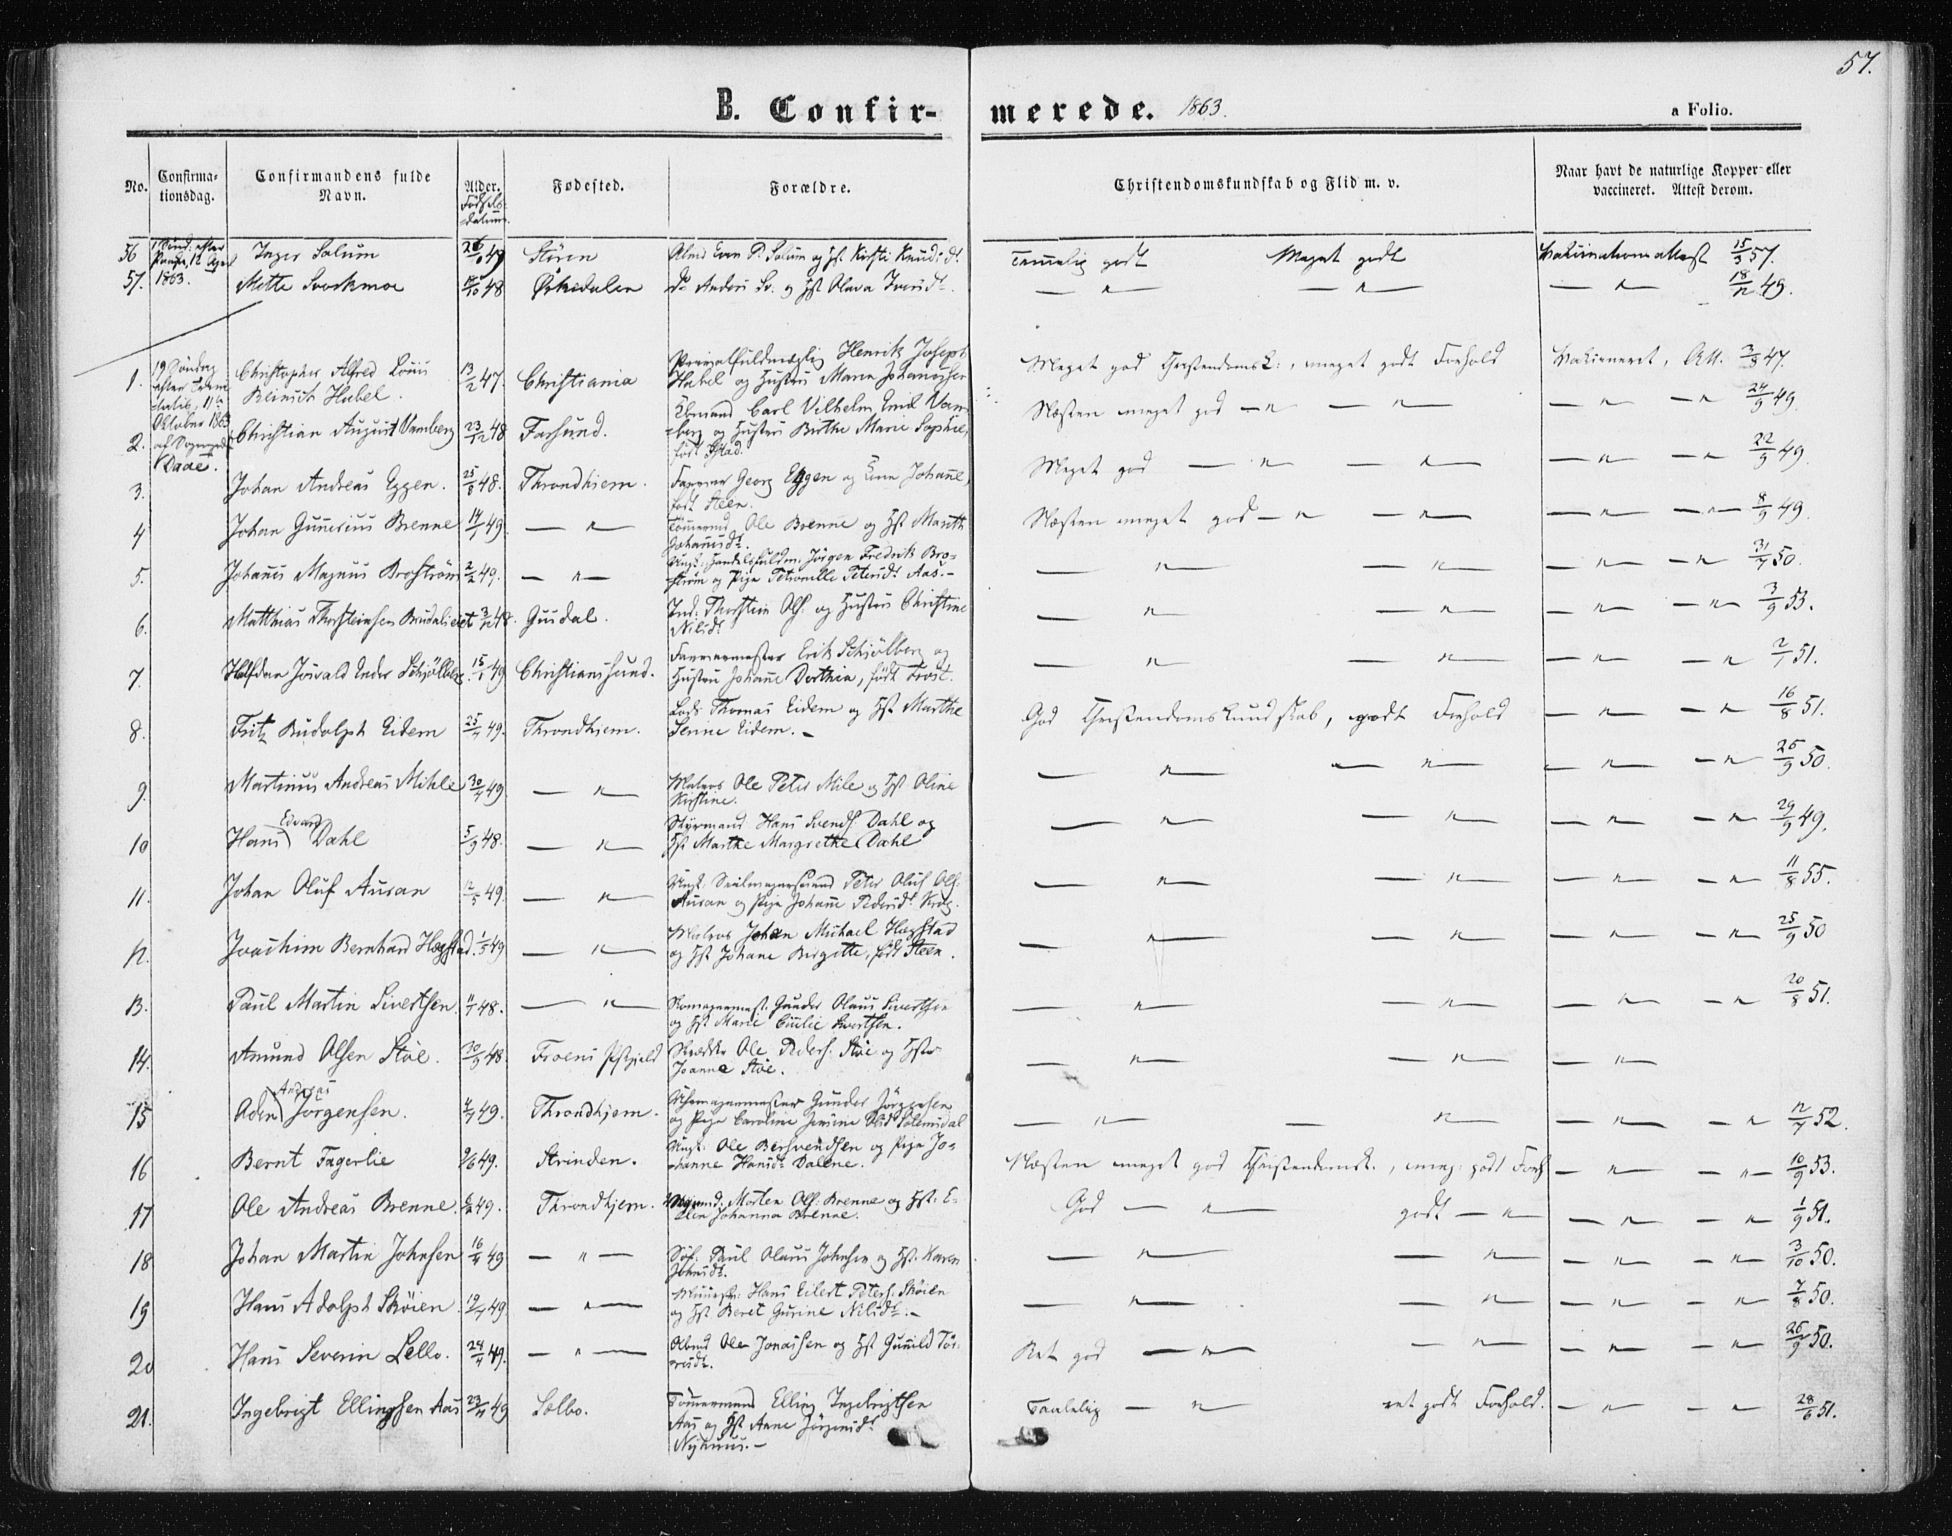 57.
B. Confirmerede. 1863.
a Folio.
No. Confirmationsdag. Confirmandens fulde Navn. Alder. Fødselsdatum. Fødested. Forældre. Christendomskundskab og Flid m. v. Naar havt de naturlige Kopper eller vaccineret. Attest derom.
56 1 Sønd: efter Paaske, 12 April 1863. Inger Solum 49 Stören Even P. Solum og Kirsti Knuds d. Temmelig godt Meget godt Vakcinationsattest 15/3 57.
57. Mette Svorkmoe 48 Ørkedalen Do Anders Sv. og Hst Olava Iversdt. — " — — " — — " — 18/12 49.
1. 19 Søndag efter Trinitatis, 11te Oktober 1863 af Sogneprest Daae. Christopher Alfred Louis Heinrich Hubel. 13/2 47. Christiania Henrik Joseph Hubel og Hustru Maren Johannesen Meget god Christendomsk:, meget godt Forhold Vakcineret, Att. 3/8 47.
2. Christian August Vamberg 23/12 48 Farsund. Carl Vilhelm Emil Vamberg og Hustru Birthe Marie Sophie, født Næsten meget god — " — — " — — " — — " 24/9 49.
3. Johan Andreas Eggen. 25/8 48. Throndhjem. Farver Georg Eggen og Kone Johanne, født Steen. Meget god — " — — " — — " — — " 22/9 49.
4 Johan Gunerius Brenne 14/1 49. — " — Tömermd Ole Brenne og Hst Marith Johansdt. Næsten meget god — " — — " — — " — — " — 8/9 49.
5. Johannes Magnus Broström 2/2 49. — " — Ungk: Handelsfuldm: Jörgen Fredrik Broström og Pige Petronelle Petersdt Aas. — — " — — " — — " — — " 31/7 50.
6. Matthias Thorsteinsen Brudalieiet 3/12 48. Guidal. Ind: Thorstein Ols. og Hustru Christine Nilsdt — " — — " — — " — — " 3/9 53.
7. Halfdan Joswald Ender Schjölberg. 15/1 49 Christianssund. Farvermester Erik Schjölberg og Hustru Johanne Dorthea, født Frost. — " — — " — — " — — " 2/1 51.
8. Fritz Rudolph Eidem 25/4 49. Throndhjem. Lods Thomas Eidem og Hst Marthe Senne Eidem. — God Christendomskundskab, godt Forhold — " — — " 16/8 51.
9. Martinus Andreas Mihle 30/4 49 — " — Matros Ole Peter Mile og Hst Oline Kirstine. — " — — " — — " — — " 25/9 50.
10 Hans Edvard Dahl 5/9 48. — " — Styrmand Hans Svends. Dahl og Hst Marthe Margrethe Dahl — " — — " — — " — — " 29/9 49.
11. Johan Oluf Auran 12/5 49. — " — Ungk: Seilmagersvend Peter Oluf Ols. Auran og Pige Johanne Pedersdt — " — — " — — " — — " 11/8 55.
12. Joachim Bernhard Hegstad. 1/5 49 — " — Matros Johan Michael Hegstad og Hst Johane Birgitte, født Steen. — " — — " — — " — — " 25/9 50
13. Paul Martin Sivertsen. 11/7 48. — " — Skomagermest. Gunder Olaus Sivertsen og Hst Marie Emilie Sivertsen. — " — — " — — " — — " 20/8 51.
14. Amund Olsen Støe. 30/9 48 Froens Pstgjeld Skrædder Ole Peders. Støe og Hstr Joanna Støe. — " — — " — — " —
15 Aden Andreas Jörgensen. 49. Throndhjem. Gunder Jörgensen og Pige Caroline — " — — " — — " — — " 12/7 52.
16 Bernt Fagerlie 49. Strinden. Ungk: Ole Bersvendsen og Pige Johanne Hansdt Dalene. Næsten meget god Christendomsk., meg: godt Forh — " — — " 10/9 53.
17 Ole Andreas Brenne. 49. Throndhjem. Morten Ols: Brenne og Hst. Elen Johanna Brenne. God — " — godt — " — " — — " 1/9 51.
18 Johan Martin Johnsen 16/4 49 — " — Søf: Paul Olaus Johnsen og Hst. Karen Johnsdt. — " — — " — " — — " 3/10 50.
19 Hans Adolph Sköien 19/4 49 — " — Hans Eilert Peters. Sköien og Hst Beret Gurine Nilsdt. — — " — — " — — " — — " 7/8 50.
20 Hans Severin Lello. 24/4 49. — " — Arbmd Ole Jonassen og Hst Gunild Ret god — " — — " — — " — — " 25/9 50.
21. Ingebrigt Ellingsen Aas 23/11 49 Sælbo. Tömermand Elling Ingebrigtsen Aas og Hst Anne Jörgensdt Nyhuus. — Taalelig — " ret godt Forhold. — " — — " 28/6 51.